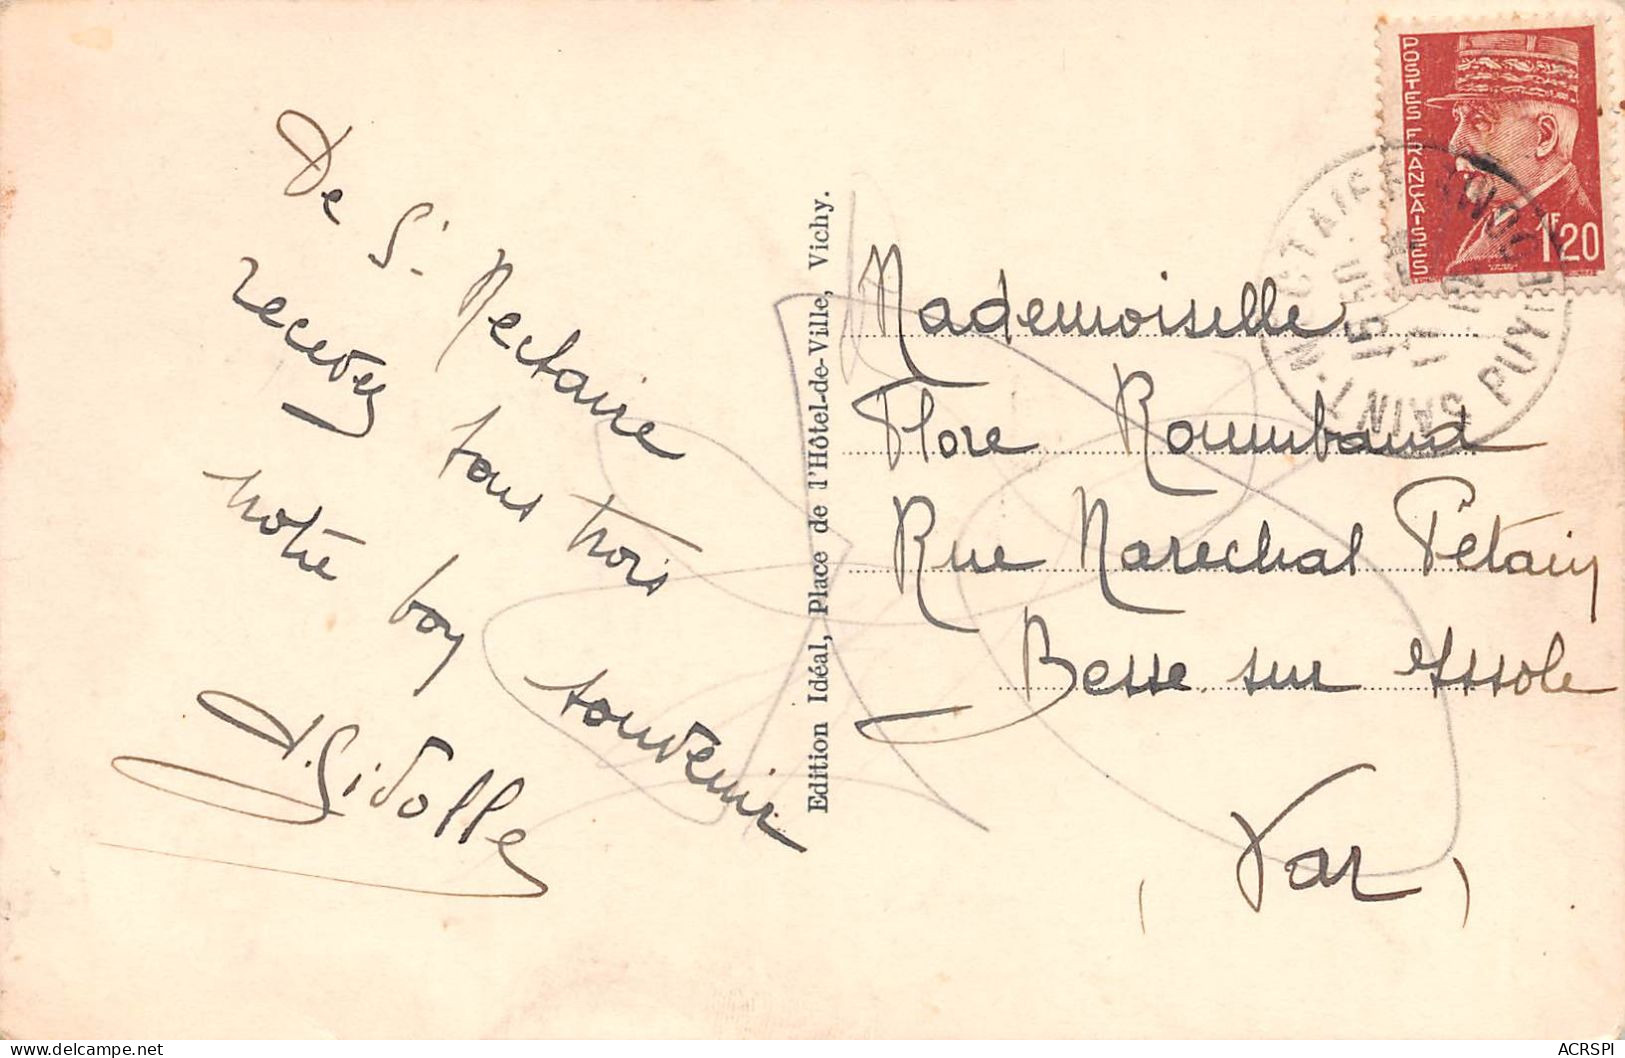 De St Nectaire
recevez tous trois
notre bon souvenir
Edition Idéal, Place de l'Hôtel-de-Ville, Vichy.
POSTES FRANÇAISES
1F20
SAINT-NECTAIRE
PUY DE DOME
Mademoiselle
Flore Roumbaud
Rue Marechal Petain
Besse sur Issole
(Var)
ACRSPI